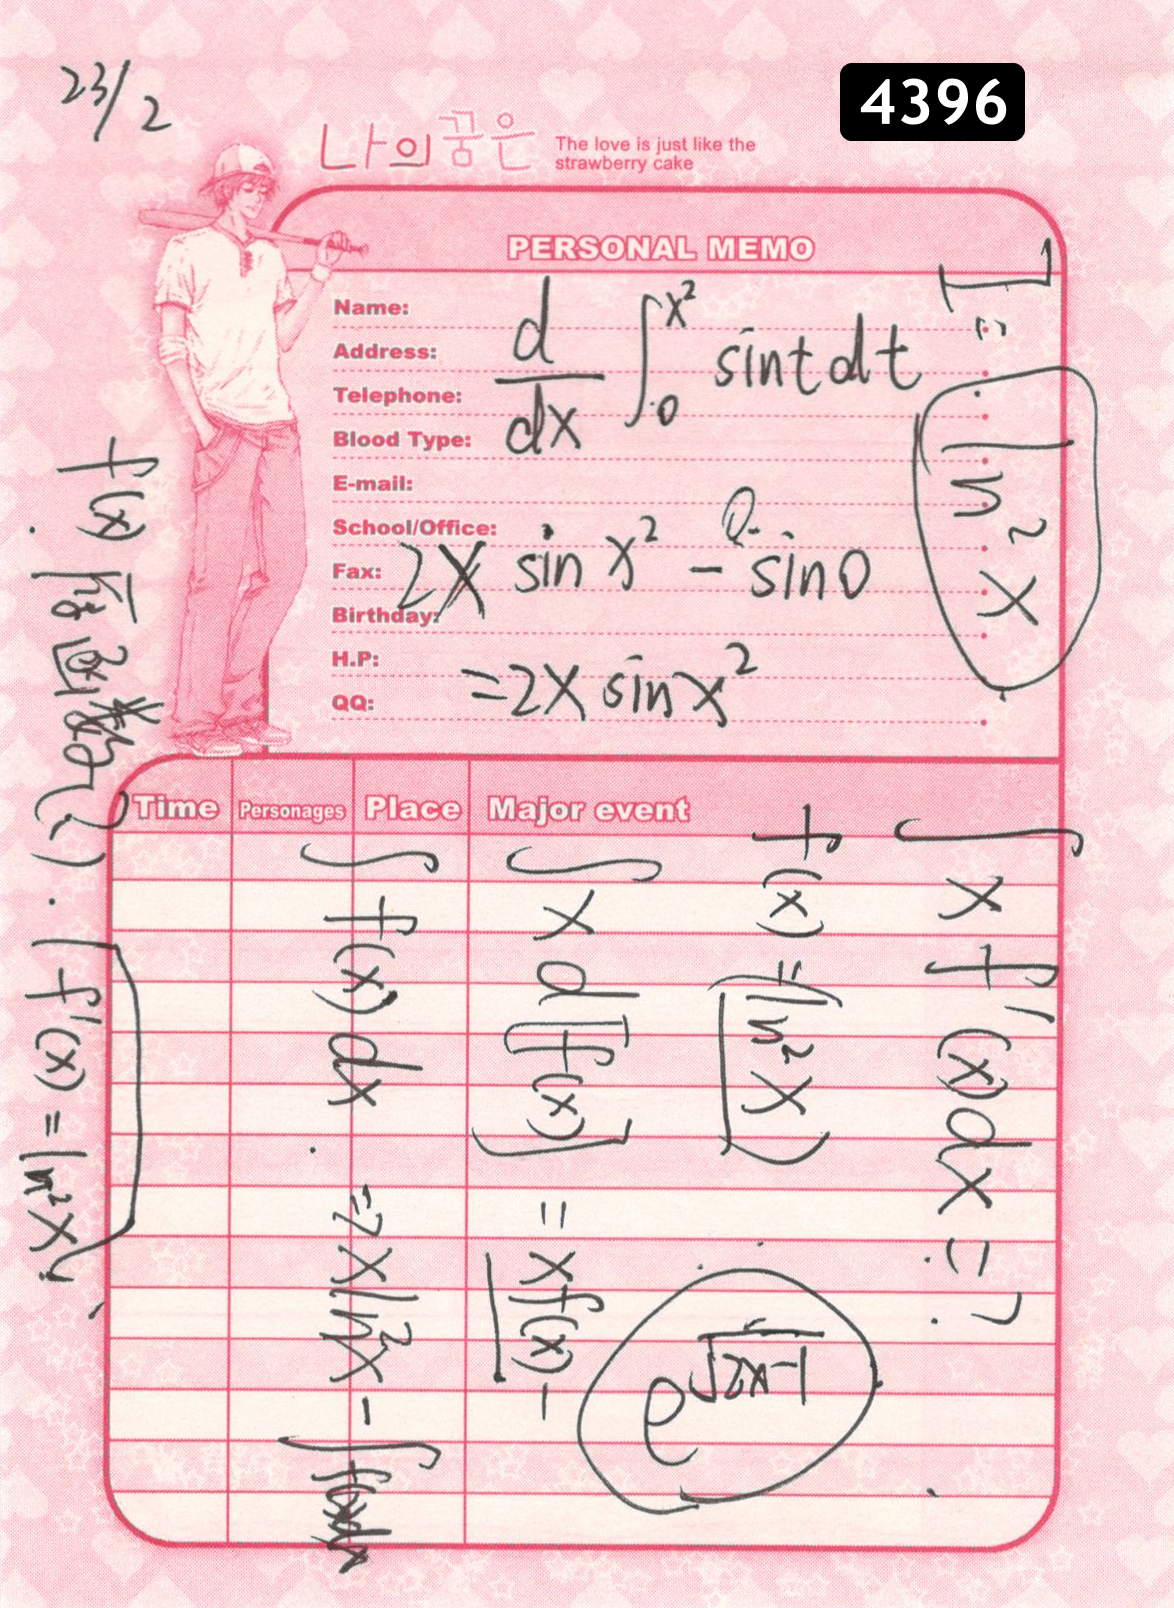 23/2
4396
나의꿈은
The love is just like the
strawberry cake
PERSONAL MEMO
Name:
Address:
Telephone:
Blood Type:
E-mail:
School/Office:
Fax:
Birthday:
H.P:
QQ:
d/dx ∫₀^x² sint dt
2x sin x² - 0·sin0
=2x sin x²
Time
Personages
Place
Major event
ln²x
∫ x f'(x)dx = ?
f(x) = (ln²x)
∫ x d[f(x)] = xf(x) -
∫ f(x) dx
= x ln²x - ∫ f(x)dx
f(x) 原函数
f'(x) = ln²x
e^√2x-1